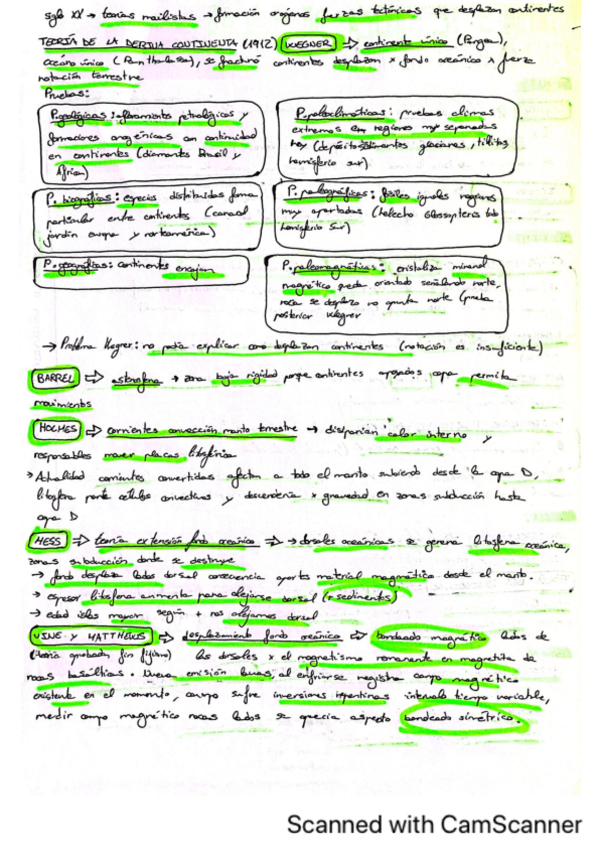 siglo XX → teorías movilistas → formación orógenos fuerzas tectónicas que desplazan continentes
TEORÍA DE LA DERIVA CONTINENTAL (1912) WEGNER ⇒ continente único (Pangea),
océano único (Panthalassa), se fracturó continentes desplazan x fondo oceánico x fuerza
rotación terrestre
Pruebas:
P. geológicas: afloramientos petrológicos y
formaciones orogénicas con continuidad
en continentes (diamantes Brasil y
África)
P. paleoclimáticas: pruebas climas
extremos en regiones muy separadas
hoy (depósitos glaciares, tillitas
hemisferio sur)
P. biográficas: especies distribuidas forma
particular entre continentes (caracol
jardín europa y norteamérica)
P. paleográficas: fósiles iguales regiones
muy apartadas (helecho Glossopteris todo
hemisferio sur)
P. geográficas: continentes encajan
P. paleomagnéticas: cristaliza mineral
magnético queda orientado señalando norte,
roca se desplaza no apunta norte (prueba
posterior Wegner
→ Problema Wegner: no podía explicar como desplazan continentes (rotación es insuficiente)
BARREL ⇒ astenosfera → zona baja rigidez porque continentes apoyados capa permita
movimientos
HOLMES ⇒ corrientes convección manto terrestre → disiparían calor interno y
responsables mover placas litosféricas
→ Actualidad corrientes convectivas afectan a todo el manto subiendo desde la capa D,
litosfera parte células convectivas y descendería x gravedad en zonas subducción hasta
capa D
HESS ⇒ teoría extensión fondo oceánico ⇒ → dorsales oceánicas se genera litosfera oceánica,
zonas subducción donde se destruye
→ fondo desplaza lados dorsal consecuencia aporte material magmático desde el manto.
→ espesor litosfera aumenta para alejarse dorsal (+ sedimentos)
→ edad islas mayor según + nos alejamos dorsal
VINE y MATTHEWS ⇒ desplazamiento fondo oceánico ⇒ bandeado magnético lados de
las dorsales x el magnetismo remanente en magnetita de
rocas basálticas. Nueva emisión lavas, al enfriarse registra campo magnético
existente en el momento, campo sufre inversiones repentinas intervalo tiempo variable,
medir campo magnético rocas lados se aprecia aspecto bandeado simétrico.
Scanned with CamScanner